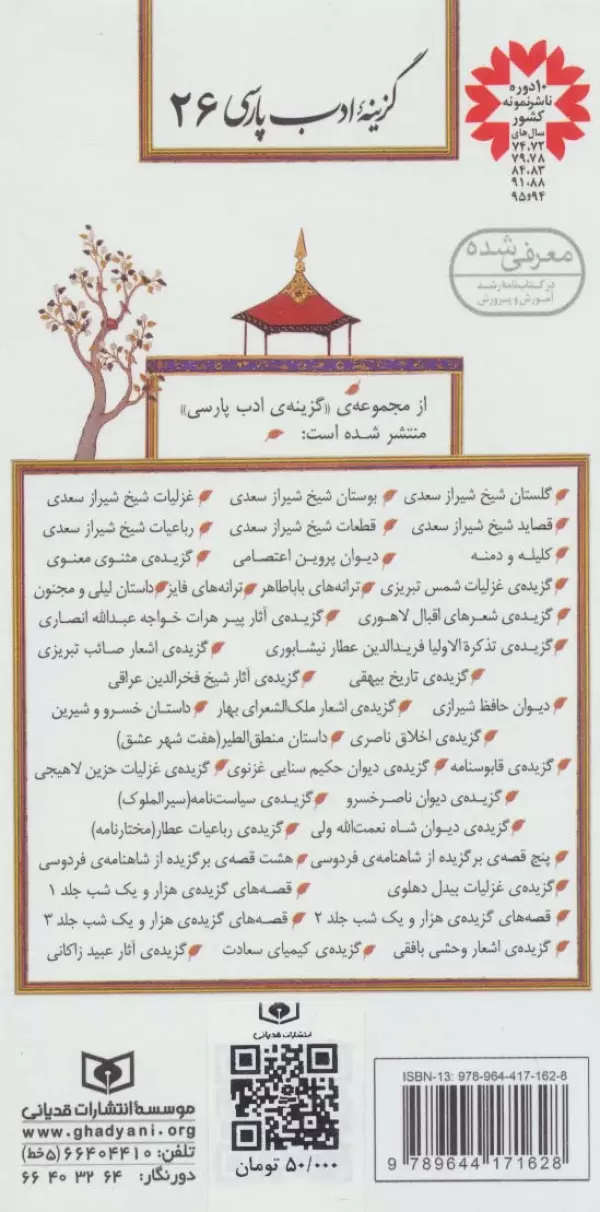 گزینۀ ادب پارسی ۲۶
۱۰ دوره
ناشر نمونه
کشور
سال‌های
۷۴،۷۲
۷۹،۷۸
۸۴،۸۳
۹۱،۸۸
۹۴و۹۵
معرفی شده
در کتاب‌نامه رشد
آموزش و پرورش
از مجموعه‌ی «گزینه‌ی ادب پارسی»
منتشر شده است:
گلستان شیخ شیراز سعدی بوستان شیخ شیراز سعدی غزلیات شیخ شیراز سعدی
قصاید شیخ شیراز سعدی قطعات شیخ شیراز سعدی رباعیات شیخ شیراز سعدی
کلیله و دمنه دیوان پروین اعتصامی گزیده‌ی مثنوی معنوی
گزیده‌ی غزلیات شمس تبریزی ترانه‌های باباطاهر ترانه‌های فایز داستان لیلی و مجنون
گزیده‌ی شعرهای اقبال لاهوری گزیده‌ی آثار پیر هرات خواجه عبدالله انصاری
گزیده‌ی تذکرة الاولیا فریدالدین عطار نیشابوری گزیده‌ی اشعار صائب تبریزی
گزیده‌ی تاریخ بیهقی گزیده‌ی آثار شیخ فخرالدین عراقی
دیوان حافظ شیرازی گزیده‌ی اشعار ملک‌الشعرای بهار داستان خسرو و شیرین
گزیده‌ی اخلاق ناصری داستان منطق‌الطیر(هفت شهر عشق)
گزیده‌ی قابوسنامه گزیده‌ی دیوان حکیم سنایی غزنوی گزیده‌ی غزلیات حزین لاهیجی
گزیده‌ی دیوان ناصرخسرو گزیده‌ی سیاست‌نامه(سیرالملوک)
گزیده‌ی دیوان شاه نعمت‌الله ولی گزیده‌ی رباعیات عطار(مختارنامه)
پنج قصه‌ی برگزیده از شاهنامه‌ی فردوسی هشت قصه‌ی برگزیده از شاهنامه‌ی فردوسی
گزیده‌ی غزلیات بیدل دهلوی قصه‌های گزیده‌ی هزار و یک شب جلد ۱
قصه‌های گزیده‌ی هزار و یک شب جلد ۲ قصه‌های گزیده‌ی هزار و یک شب جلد ۳
گزیده‌ی اشعار وحشی بافقی گزیده‌ی کیمیای سعادت گزیده‌ی آثار عبید زاکانی
ISBN-13: 978-964-417-162-8
9 789644 171628
انتشارات قدیانی
۵۰/۰۰۰ تومان
موسسۀ انتشارات قدیانی
www.ghadyani.org
تلفن: ۶۶۴۰۴۴۱۰ (۵خط)
دورنگار: ۶۶ ۴۰ ۳۲ ۶۴